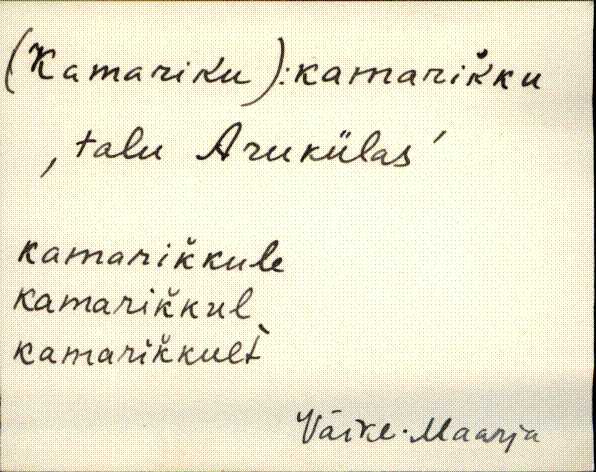 (Kamariku): kamarik̆ku
‚talu Aruküläs’
kamarik̆kule
kamarik̆kul
kamarik̆kul̀t
Väike-Maarja